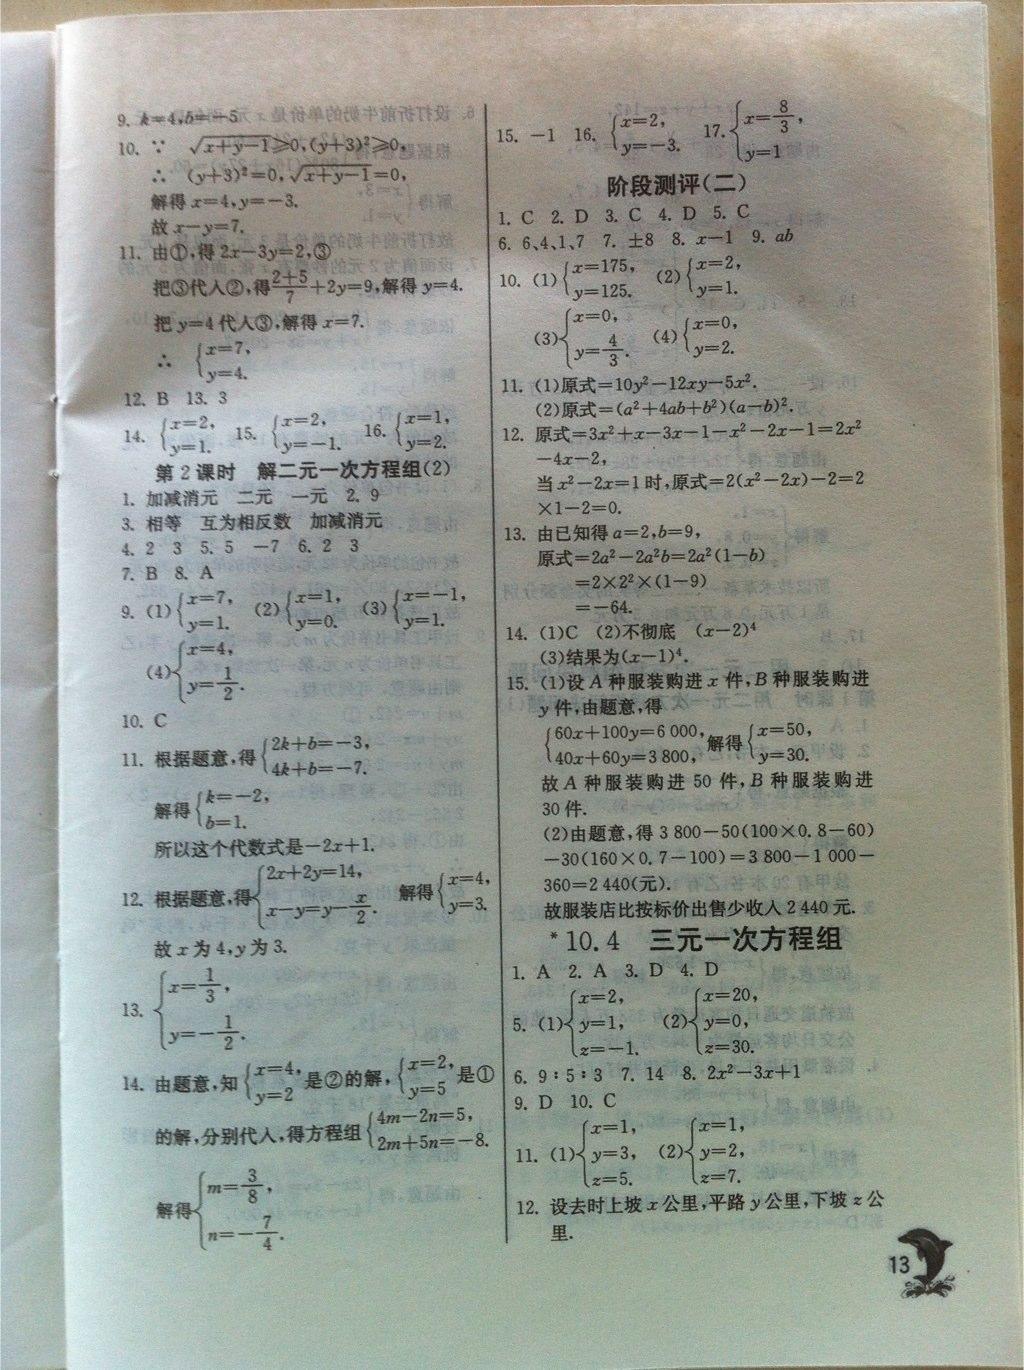 9. k=4,b=-5
10. ∵ √(x+y-1)≥0,(y+3)²≥0,
∴ (y+3)²=0,√(x+y-1)=0,
解得 x=4,y=-3.
故 x-y=7.
11. 由①,得 2x-3y=2,③
把③代入②,得(2+5)/7+2y=9,解得 y=4.
把 y=4 代入③,解得 x=7.
∴ {x=7,
y=4.
12. B 13. 3
14. {x=2, y=1. 15. {x=2, y=-1. 16. {x=1, y=2.
第 2 课时 解二元一次方程组(2)
1. 加减消元 二元 一元 2. 9
3. 相等 互为相反数 加减消元
4. 2 3 5. 5 -7 6. 2 3
7. B 8. A
9. (1){x=7, y=1. (2){x=1, y=0. (3){x=-1, y=1.
(4){x=4, y=1/2.
10. C
11. 根据题意,得{2k+b=-3, 4k+b=-7.
解得{k=-2, b=1.
所以这个代数式是-2x+1.
12. 根据题意,得{2x+2y=14, x-y=y-x/2. 解得{x=4, y=3.
故 x 为 4,y 为 3.
13. {x=1/3, y=-1/2.
14. 由题意,知{x=4, y=2 是②的解,{x=2, y=5 是①
的解,分别代入,得方程组{4m-2n=5, 2m+5n=-8.
解得{m=3/8, n=-7/4.
15. -1 16. {x=2, y=-3. 17. {x=8/3, y=1
阶段测评(二)
1. C 2. D 3. C 4. D 5. C
6. 6、4、1、7 7. ±8 8. x-1 9. ab
10. (1){x=175, y=125. (2){x=2, y=1.
(3){x=0, y=4/3. (4){x=0, y=2.
11. (1)原式=10y²-12xy-5x².
(2)原式=(a²+4ab+b²)(a-b)².
12. 原式=3x²+x-3x-1-x²-2x-1=2x²
-4x-2,
当 x²-2x=1 时,原式=2(x²-2x)-2=2
×1-2=0.
13. 由已知得 a=2,b=9,
原式=2a²-2a²b=2a²(1-b)
=2×2²×(1-9)
=-64.
14. (1)C (2)不彻底 (x-2)⁴
(3)结果为(x-1)⁴.
15. (1)设 A 种服装购进 x 件,B 种服装购进
y 件,由题意,得
{60x+100y=6 000, 40x+60y=3 800, 解得{x=50, y=30.
故 A 种服装购进 50 件,B 种服装购进
30 件.
(2)由题意,得 3 800-50(100×0.8-60)
-30(160×0.7-100)=3 800-1 000-
360=2 440(元).
故服装店比按标价出售少收入 2 440 元.
*10.4 三元一次方程组
1. A 2. A 3. D 4. D
5. (1){x=2, y=1, z=-1. (2){x=20, y=0, z=30.
6. 9∶5∶3 7. 14 8. 2x²-3x+1
9. D 10. C
11. (1){x=1, y=3, z=5. (2){x=1, y=2, z=7.
12. 设去时上坡 x 公里,平路 y 公里,下坡 z 公
里.
13